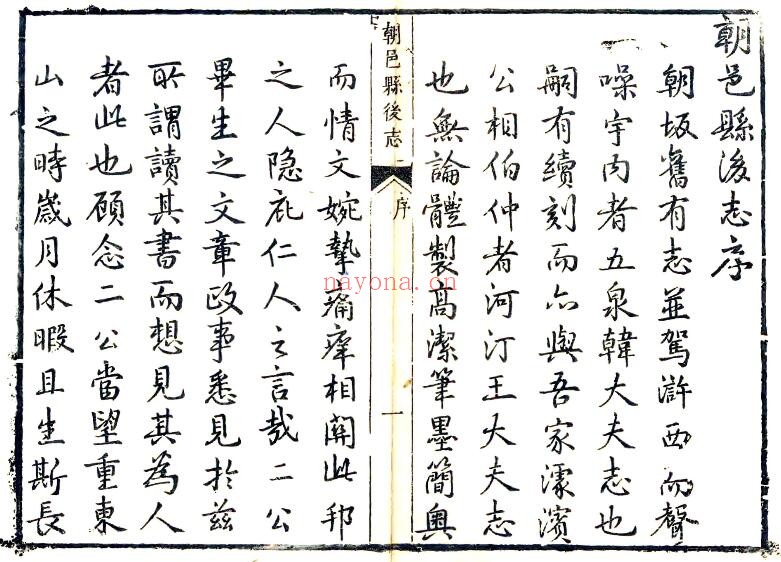 朝邑縣後志序
朝坂舊有志並駕滸西而聲
噪宇內者五泉韓大夫志也
嗣有續刻而亦與吾家濛濱
公相伯仲者河汀王大夫志
也無論體製高潔筆墨簡奧
朝邑縣後志
序
一
而情文婉摯痛痒相關此邦
之人隐庇仁人之言哉二公
畢生之文章政事悉見於茲
所謂讀其書而想見其為人
者此也顧念二公當望重東
山之時歲月休暇且生斯長
nayona.cn